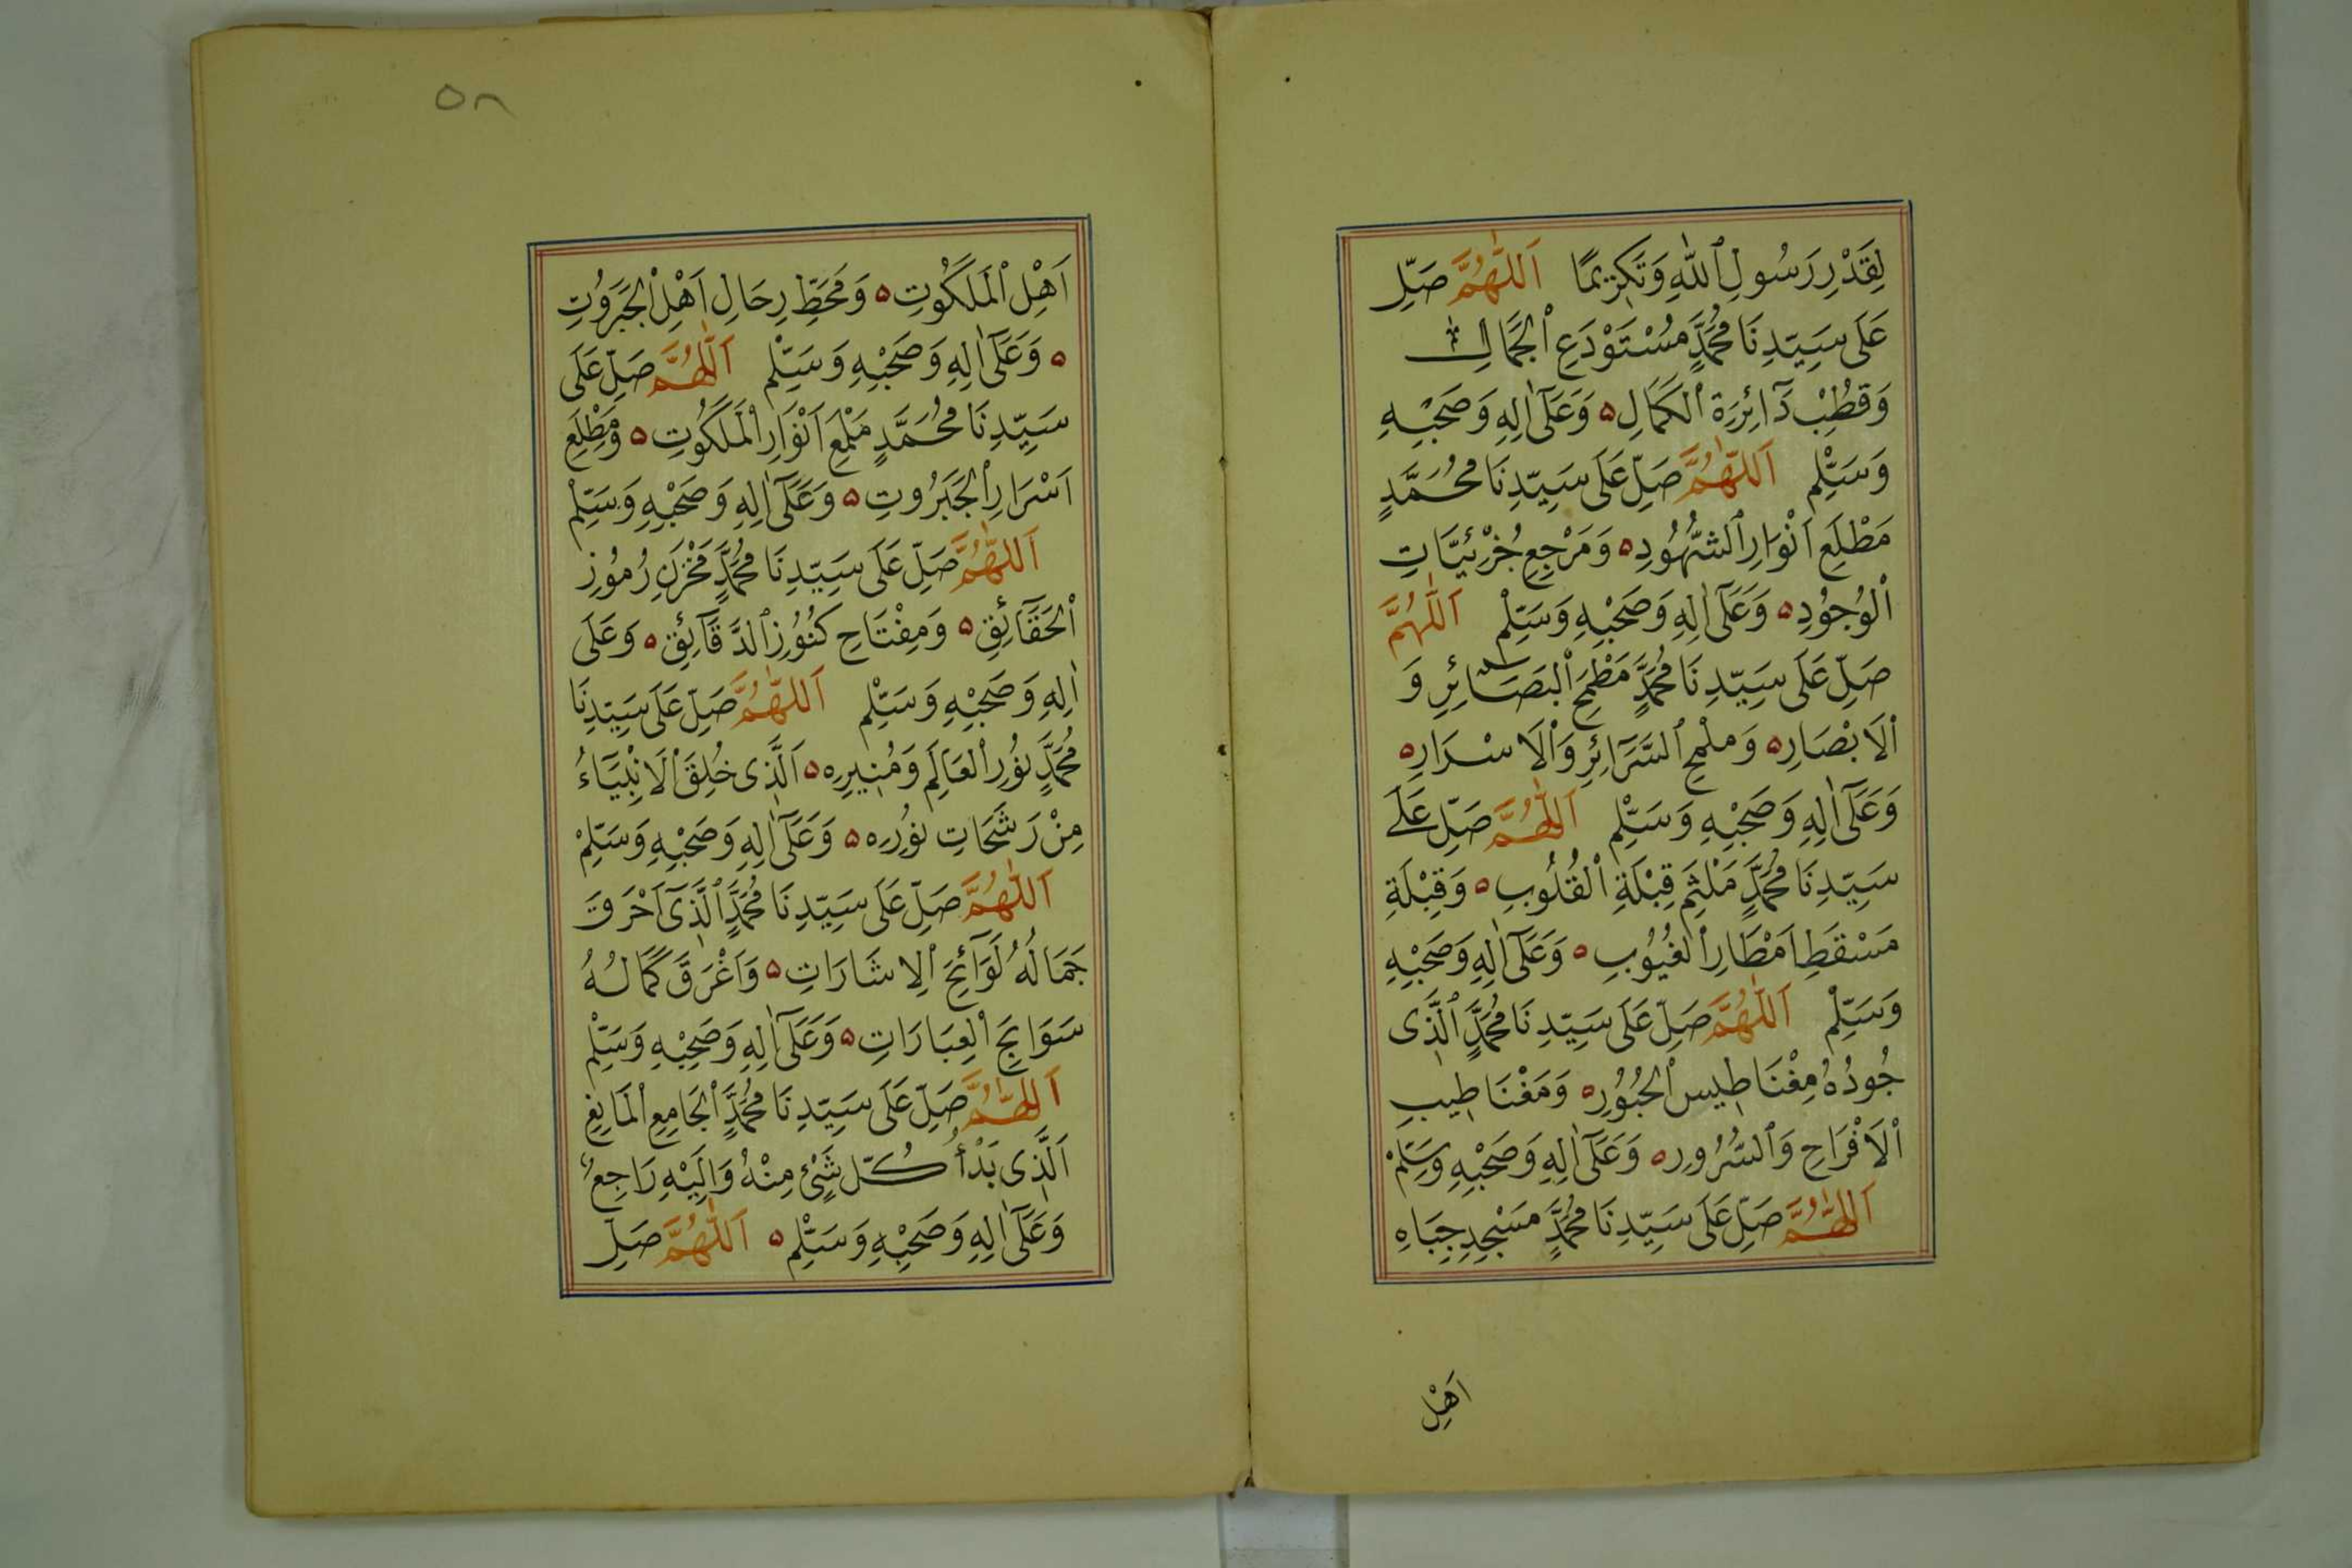 لِقَدْرِ رَسُولِ ٱللّٰهِ وَتَكْرِيمًا اَللّٰهُمَّ صَلِّ
عَلَى سَيِّدِنَا مُحَمَّدٍ مُسْتَوْدَعِ ٱلْجَمَالِ
وَقُطْبِ دَآئِرَةِ ٱلْكَمَالِ ه وَعَلَىٓ اٰلِهِ وَصَحْبِهِ
وَسَلِّمْ اَللّٰهُمَّ صَلِّ عَلَى سَيِّدِنَا مُحَمَّدٍ
مَطْلَعِ اَنْوَارِ ٱلشُّهُودِ ه وَمَرْجِعِ جُزْئِيَّاتِ
ٱلْوُجُودِ ه وَعَلَىٓ اٰلِهِ وَصَحْبِهِ وَسَلِّمْ اَللّٰهُمَّ
صَلِّ عَلَى سَيِّدِنَا مُحَمَّدٍ مَطْمَحِ ٱلْبَصَآئِرِ وَ
ٱلْاَبْصَارِ ه وَمَلْمَحِ ٱلسَّرَآئِرِ وَٱلْاَسْرَارِ ه
وَعَلَىٓ اٰلِهِ وَصَحْبِهِ وَسَلِّمْ اَللّٰهُمَّ صَلِّ عَلَى
سَيِّدِنَا مُحَمَّدٍ مَلْثَمِ قِبْلَةِ ٱلْقُلُوبِ ه وَقِبْلَةِ
مَسْقَطِ اَمْطَارِ ٱلْغُيُوبِ ه وَعَلَىٓ اٰلِهِ وَصَحْبِهِ
وَسَلِّمْ اَللّٰهُمَّ صَلِّ عَلَى سَيِّدِنَا مُحَمَّدٍ ٱلَّذِى
جُودُهُ مِغْنَاطِيس ٱلْحُبُورِ ه وَمَغْنَاطِيبِ
ٱلْاَفْرَاحِ وَٱلسُّرُورِ ه وَعَلَىٓ اٰلِهِ وَصَحْبِهِ وَسَلِّمْ
اَللّٰهُمَّ صَلِّ عَلَى سَيِّدِنَا مُحَمَّدٍ مَسْجِدِ جِبَاهِ
اَهْلِ
٥٨
اَهْلِ ٱلْمَلَكُوتِ ه وَمَحَطِّ رِحَالِ اَهْلِ ٱلْجَبَرُوتِ
ه وَعَلَىٓ اٰلِهِ وَصَحْبِهِ وَسَلِّمْ اَللّٰهُمَّ صَلِّ عَلَى
سَيِّدِنَا مُحَمَّدٍ مَلْمَعِ اَنْوَارِ ٱلْمَلَكُوتِ ه وَمَطْلَعِ
اَسْرَارِ ٱلْجَبَرُوتِ ه وَعَلَىٓ اٰلِهِ وَصَحْبِهِ وَسَلِّمْ
اَللّٰهُمَّ صَلِّ عَلَى سَيِّدِنَا مُحَمَّدٍ مَخْزَنِ رُمُوزِ
ٱلْحَقَآئِقِ ه وَمِفْتَاحِ كُنُوزِ ٱلدَّقَآئِقِ ه وَعَلَى
اٰلِهِ وَصَحْبِهِ وَسَلِّمْ اَللّٰهُمَّ صَلِّ عَلَى سَيِّدِنَا
مُحَمَّدٍ نُورِ ٱلْعَالَمِ وَمُنِيرِهِ ه اَلَّذِى خُلِقَ ٱلْاَنْبِيَآءُ
مِنْ رَشَحَاتِ نُورِهِ ه وَعَلَىٓ اٰلِهِ وَصَحْبِهِ وَسَلِّمْ
اَللّٰهُمَّ صَلِّ عَلَى سَيِّدِنَا مُحَمَّدٍ ٱلَّذِىٓ اَحْرَقَ
جَمَالُهُ لَوَآئِحَ ٱلْاِشَارَاتِ ه وَاَغْرَقَ كَمَالُهُ
سَوَابِحَ ٱلْعِبَارَاتِ ه وَعَلَىٓ اٰلِهِ وَصَحْبِهِ وَسَلِّمْ
اَللّٰهُمَّ صَلِّ عَلَى سَيِّدِنَا مُحَمَّدٍ ٱلْجَامِعِ ٱلْمَانِعِ
اَلَّذِى بَدْأُ كُلِّ شَيْءٍ مِنْهُ وَاِلَيْهِ رَاجِعٌ
وَعَلَىٓ اٰلِهِ وَصَحْبِهِ وَسَلِّمْ ه اَللّٰهُمَّ صَلِّ